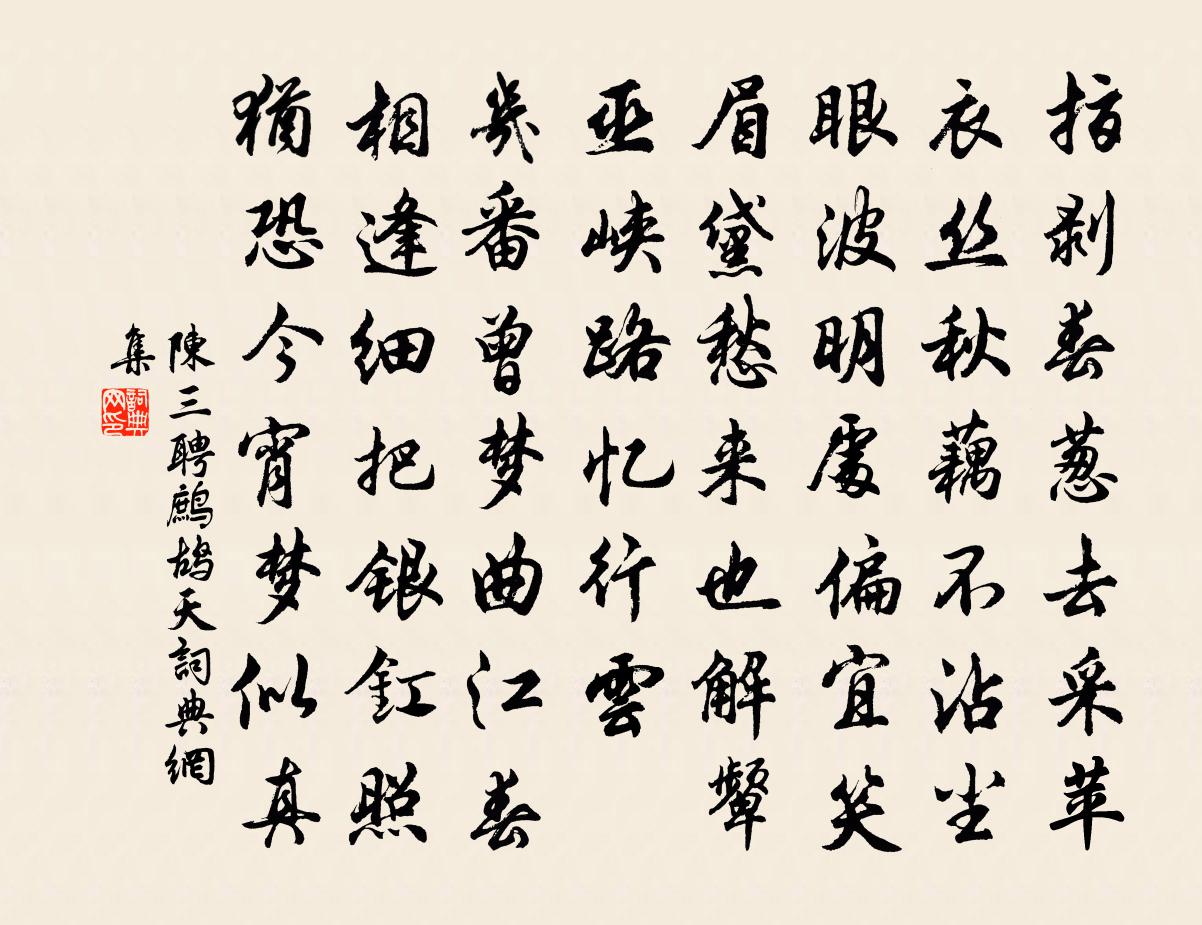 指剥春葱去采苹
衣丝秋藕不沾尘
眼波明處偏宜笑
眉黛愁来也解颦
巫峡路忆行雲
幾番曾梦曲江春
相逢细把銀釭照
猶恐今宵梦似真
陳三聘鷓鴣天詞典網
集
詞典网印